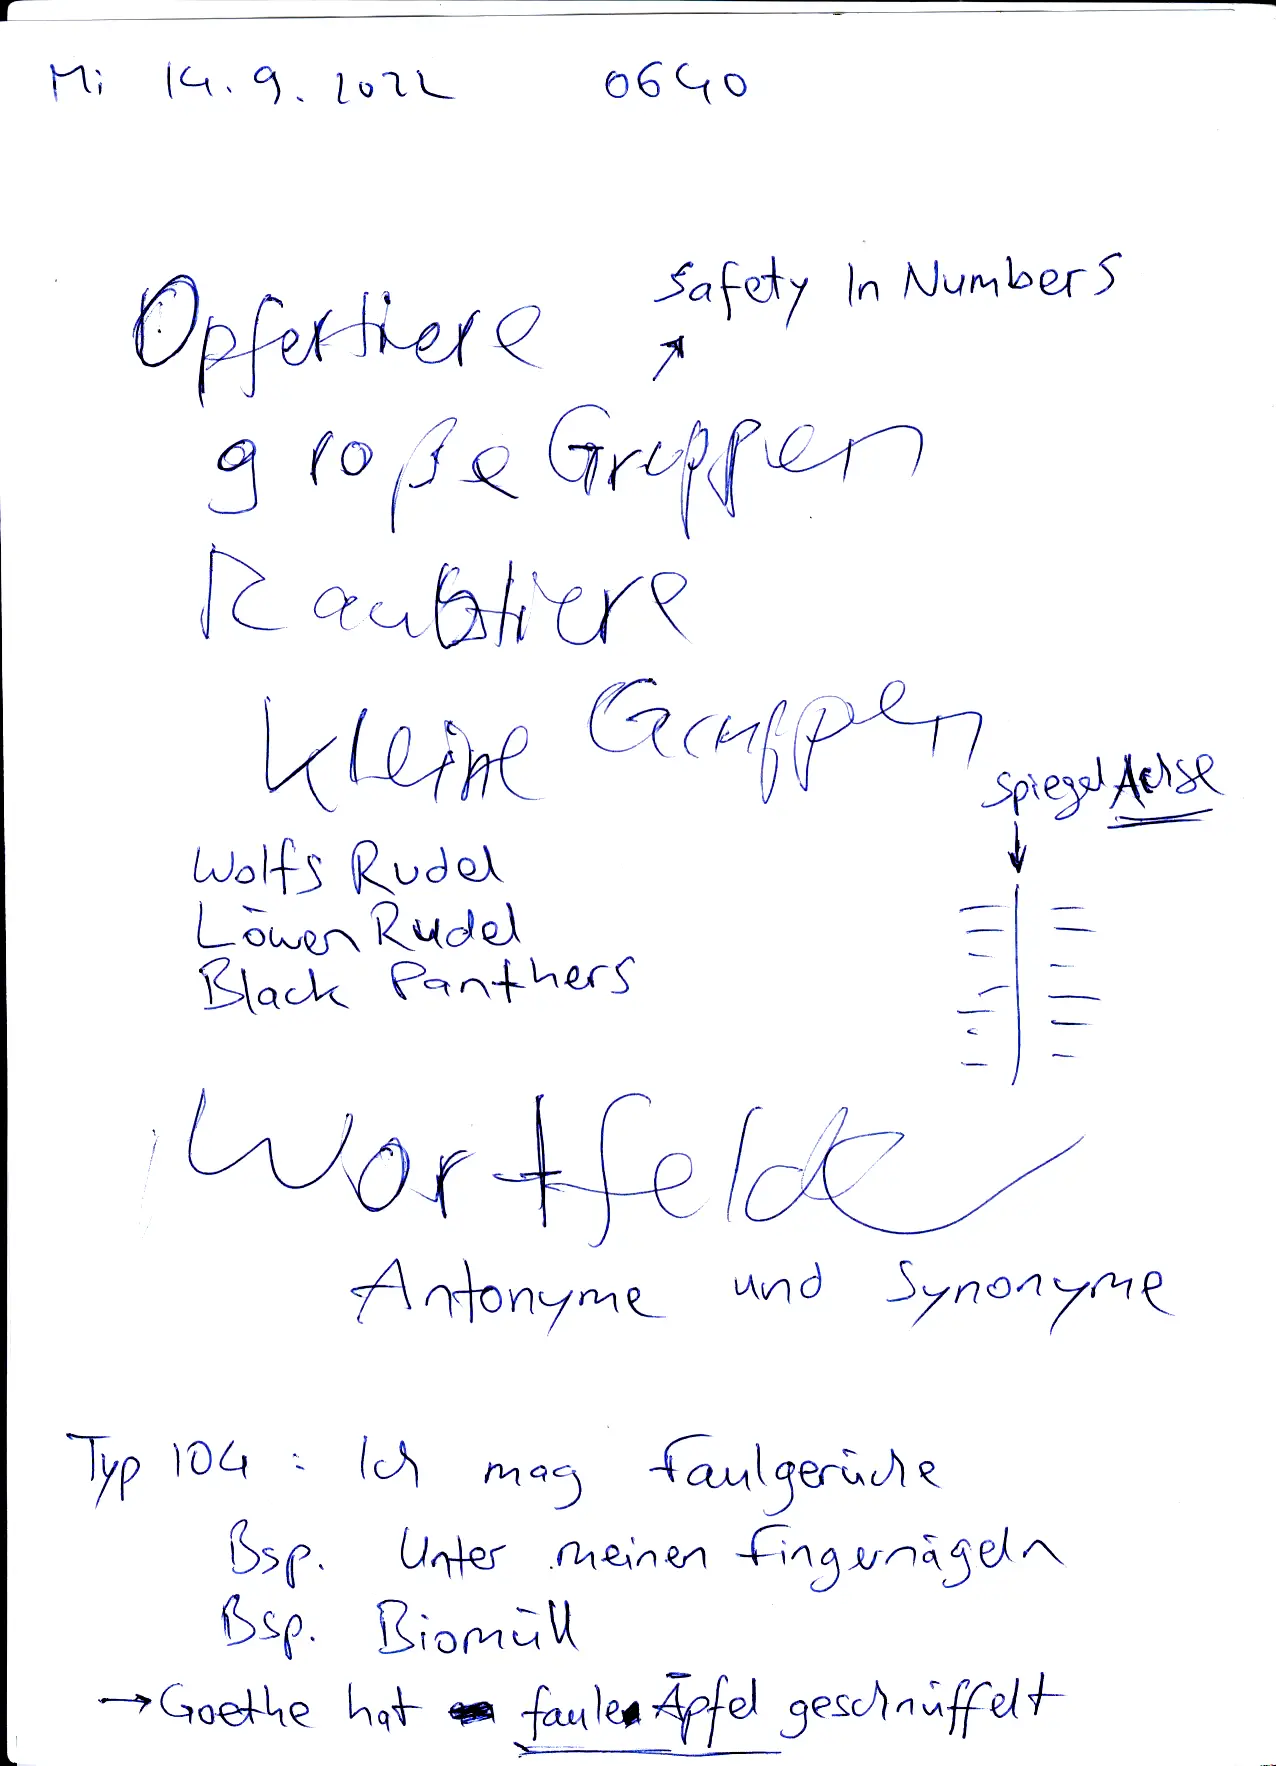 Mi 14.9.2022 0640
Safety In Numbers
Opfertiere
große Gruppen
Raubtiere
kleine Gruppen
Spiegel Achse
Wolfs Rudel
Löwen Rudel
Black Panthers
Wortfelder
Antonyme und Synonyme
Typ 104 : Ich mag Faulgerüche
Bsp. Unter meinen Fingernägeln
Bsp. Biomüll
→ Goethe hat faule Äpfel geschnüffelt